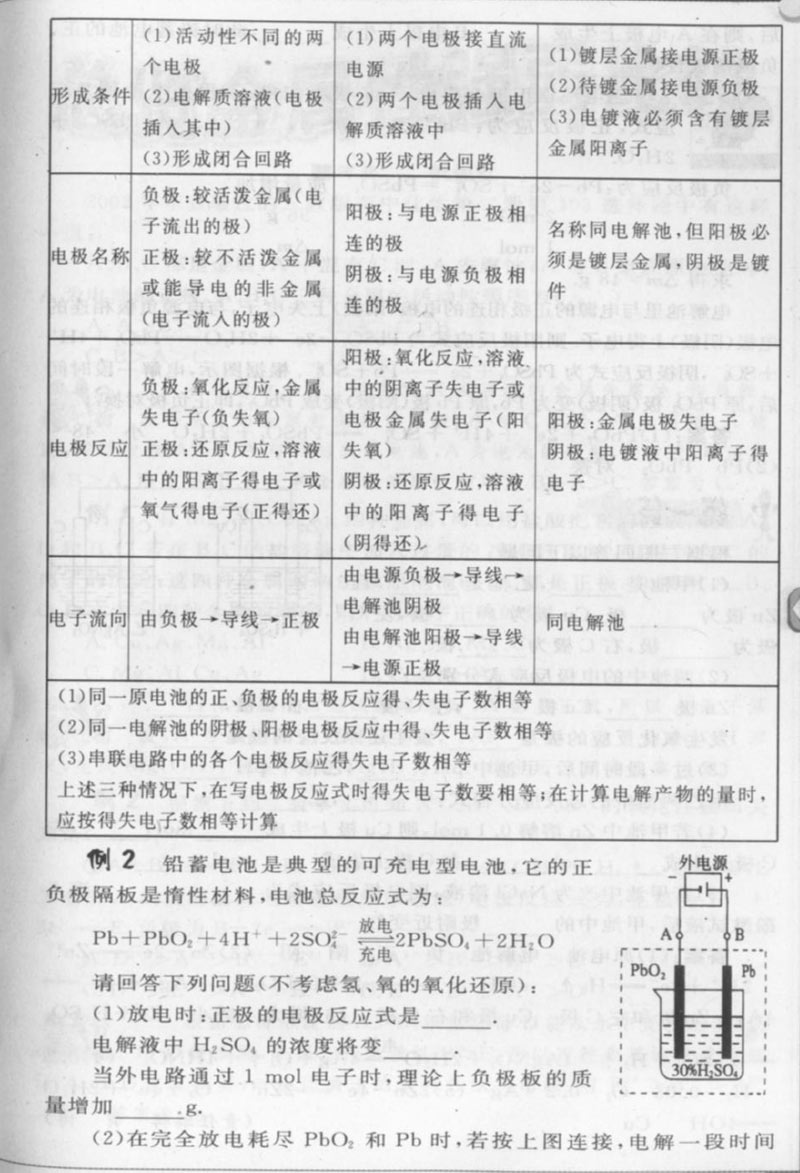 形成条件
(1)活动性不同的两
个电极
(2)电解质溶液(电极
插入其中)
(3)形成闭合回路
(1)两个电极接直流
电源
(2)两个电极插入电
解质溶液中
(3)形成闭合回路
(1)镀层金属接电源正极
(2)待镀金属接电源负极
(3)电镀液必须含有镀层
金属阳离子
电极名称
负极:较活泼金属(电
子流出的极)
正极:较不活泼金属
或能导电的非金属
(电子流入的极)
阳极:与电源正极相
连的极
阴极:与电源负极相
连的极
名称同电解池,但阳极必
须是镀层金属,阴极是镀
件
电极反应
负极:氧化反应,金属
失电子(负失氧)
正极:还原反应,溶液
中的阳离子得电子或
氧气得电子(正得还)
阳极:氧化反应,溶液
中的阴离子失电子或
电极金属失电子(阳
失氧)
阴极:还原反应,溶液
中的阳离子得电子
(阴得还)
阳极:金属电极失电子
阴极:电镀液中阳离子得
电子
电子流向
由负极→导线→正极
由电源负极→导线→
电解池阴极
由电解池阳极→导线
→电源正极
同电解池
(1)同一原电池的正、负极的电极反应得、失电子数相等
(2)同一电解池的阴极、阳极电极反应中得、失电子数相等
(3)串联电路中的各个电极反应得失电子数相等
上述三种情况下,在写电极反应式时得失电子数要相等;在计算电解产物的量时,
应按得失电子数相等计算
例2 铅蓄电池是典型的可充电型电池,它的正
负极隔板是惰性材料,电池总反应式为:
Pb+PbO₂+4H⁺+2SO₄²⁻ 放电⇌充电 2PbSO₄+2H₂O
请回答下列问题(不考虑氢、氧的氧化还原):
(1)放电时:正极的电极反应式是
电解液中 H₂SO₄ 的浓度将变
当外电路通过 1 mol 电子时,理论上负极板的质
量增加____g.
(2)在完全放电耗尽 PbO₂ 和 Pb 时,若按上图连接,电解一段时间
外电源
- +
A B
PbO₂ Pb
30%H₂SO₄